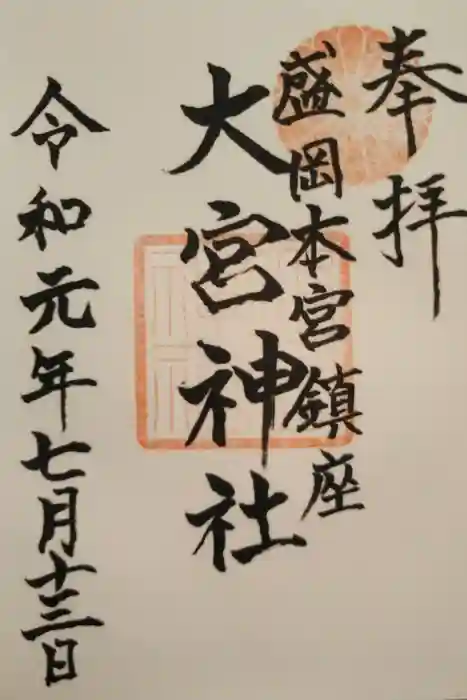 奉拝
盛岡本宮鎮座
大宮神社
令和元年七月十三日